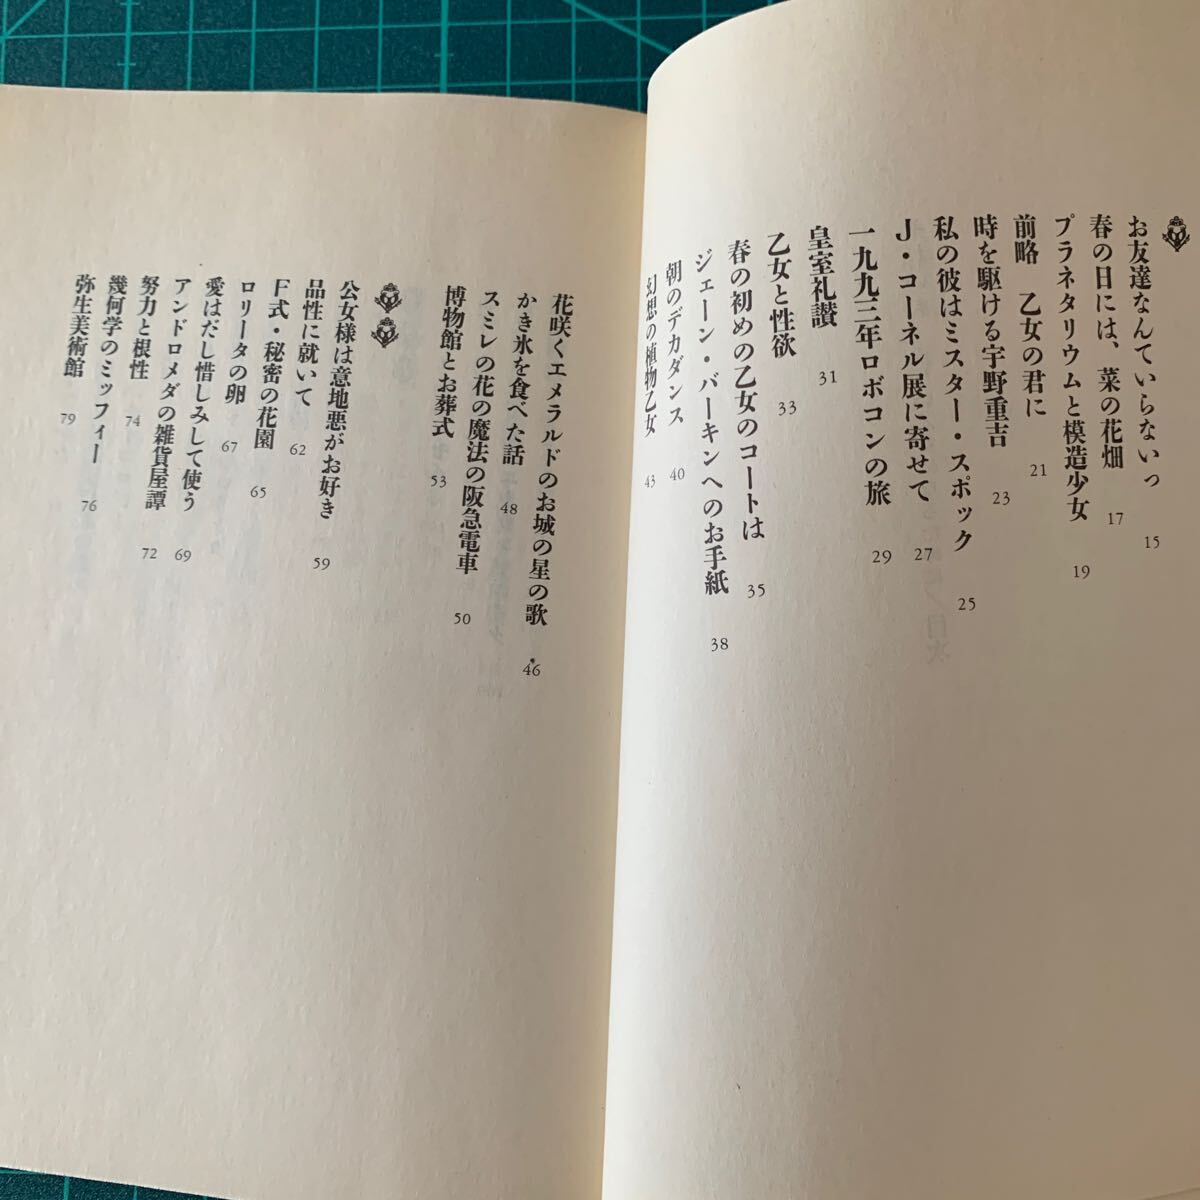 お友達なんていらないっ 15
春の日には、菜の花畑 17
プラネタリウムと模造少女 19
前略 乙女の君に 21
時を駆ける宇野重吉 23
私の彼はミスター・スポック 25
J・コーネル展に寄せて 27
一九九三年ロボコンの旅 29
皇室礼讃 31
乙女と性欲 33
春の初めの乙女のコートは 35
ジェーン・バーキンへのお手紙 38
朝のデカダンス 40
幻想の植物乙女 43
花咲くエメラルドのお城の星の歌 46
かき氷を食べた話 48
スミレの花の魔法の阪急電車 50
博物館とお葬式 53
公女様は意地悪がお好き 59
品性に就いて 62
F式・秘密の花園 65
ロリータの卵 67
愛はだし惜しみして使う 69
アンドロメダの雑貨屋譚 72
努力と根性 74
幾何学のミッフィー 76
弥生美術館 79